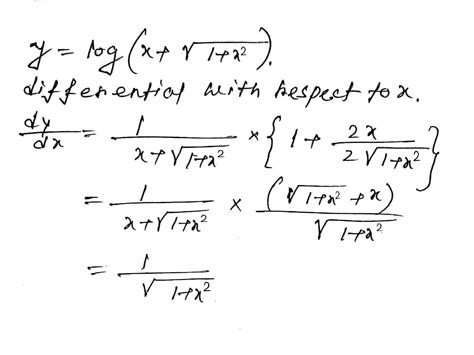 y = log(x + √(1+x²)).
differential with respect to x.
dy/dx = 1/(x+√(1+x²)) × {1 + 2x/(2√(1+x²))}
= 1/(x+√(1+x²)) × (√(1+x²) + x)/√(1+x²)
= 1/√(1+x²)